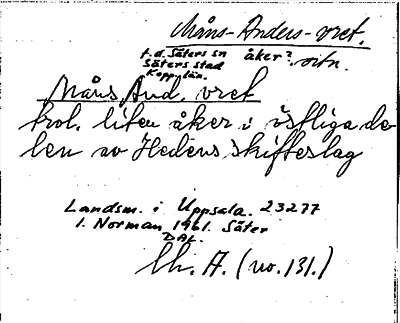 Måns-Anders-vret.
f.d. Säters sn åker? oitn.
Säters stad
Kopp. län.
Måns And. vret
trol. liten åker i östliga de-
len av Hedens skifteslag
Landsm. i Uppsala. 23277
I. Norman 1961. Säter
DAL.
Chr. A. (no. 131.)